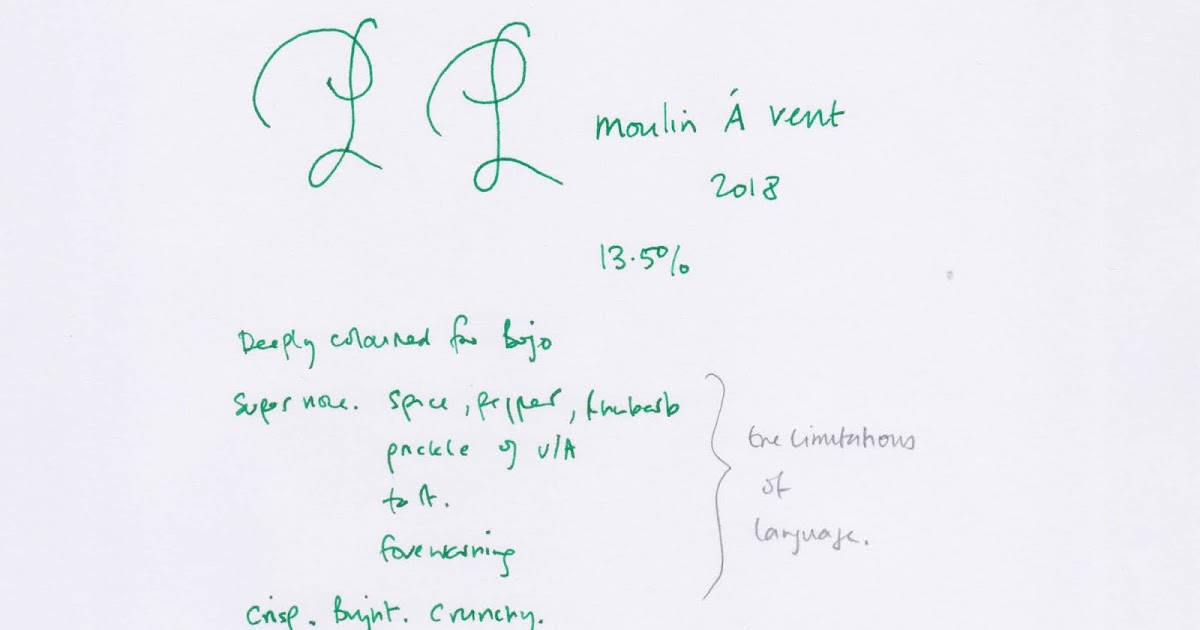 PL PL
Moulin Á Vent
2018
13.5%
Deeply coloured for Bojo
Super nose. Spice, pepper, rhubarb
prickle of V/A
to it.
forewarning
Crisp. Bright. Crunchy.
the limitations
of
language.